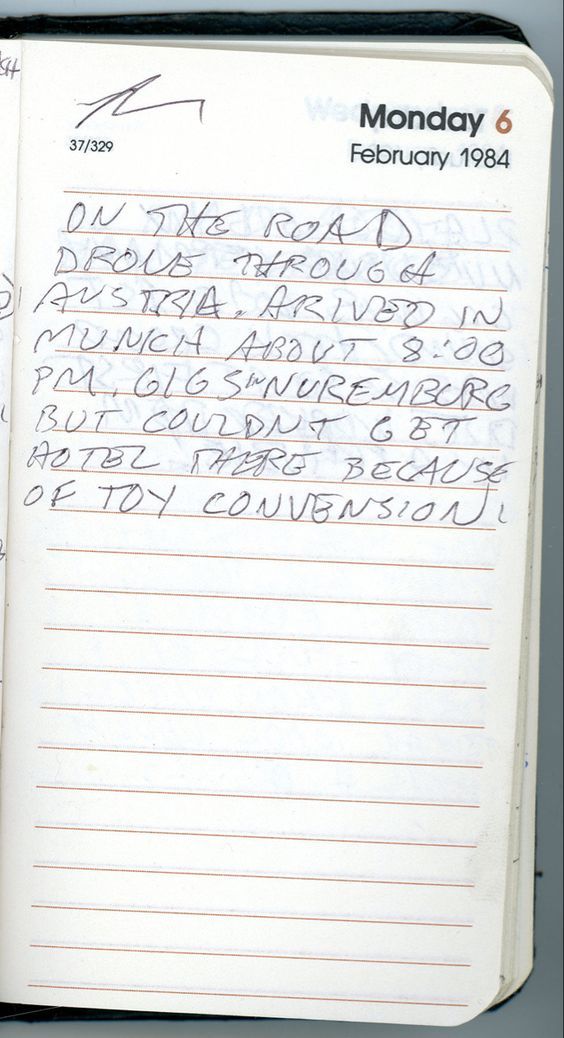 Monday 6
37/329
February 1984
ON THE ROAD
DROVE THROUGH
AUSTRIA. ARIVED IN
MUNICH ABOUT 8:00
PM. GIGS IN NUREMBURG
BUT COULDNT GET
HOTEL THERE BECAUSE
OF TOY CONVENSION!